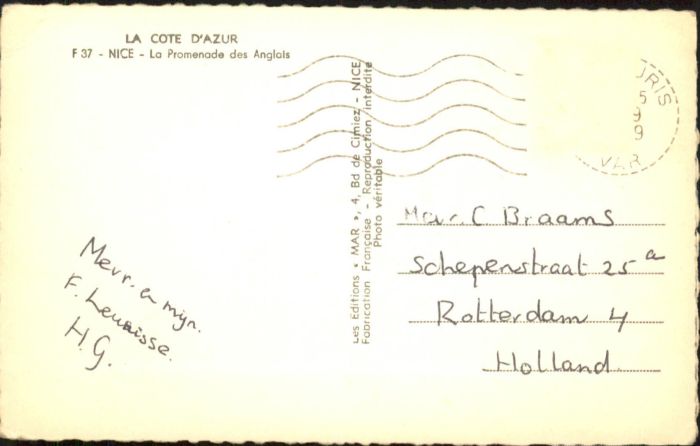 LA COTE D'AZUR
F 37 - NICE - La Promenade des Anglais
Les Editions « MAR », 4, Bd de Cimiez - NICE
Fabrication Française - Reproduction interdite
Photo véritable
ORIS
5
9
9
VAR
C Braams
Schepenstraat 25 a
Rotterdam 4
Holland
Mevr. en mijn.
F.
H.G.